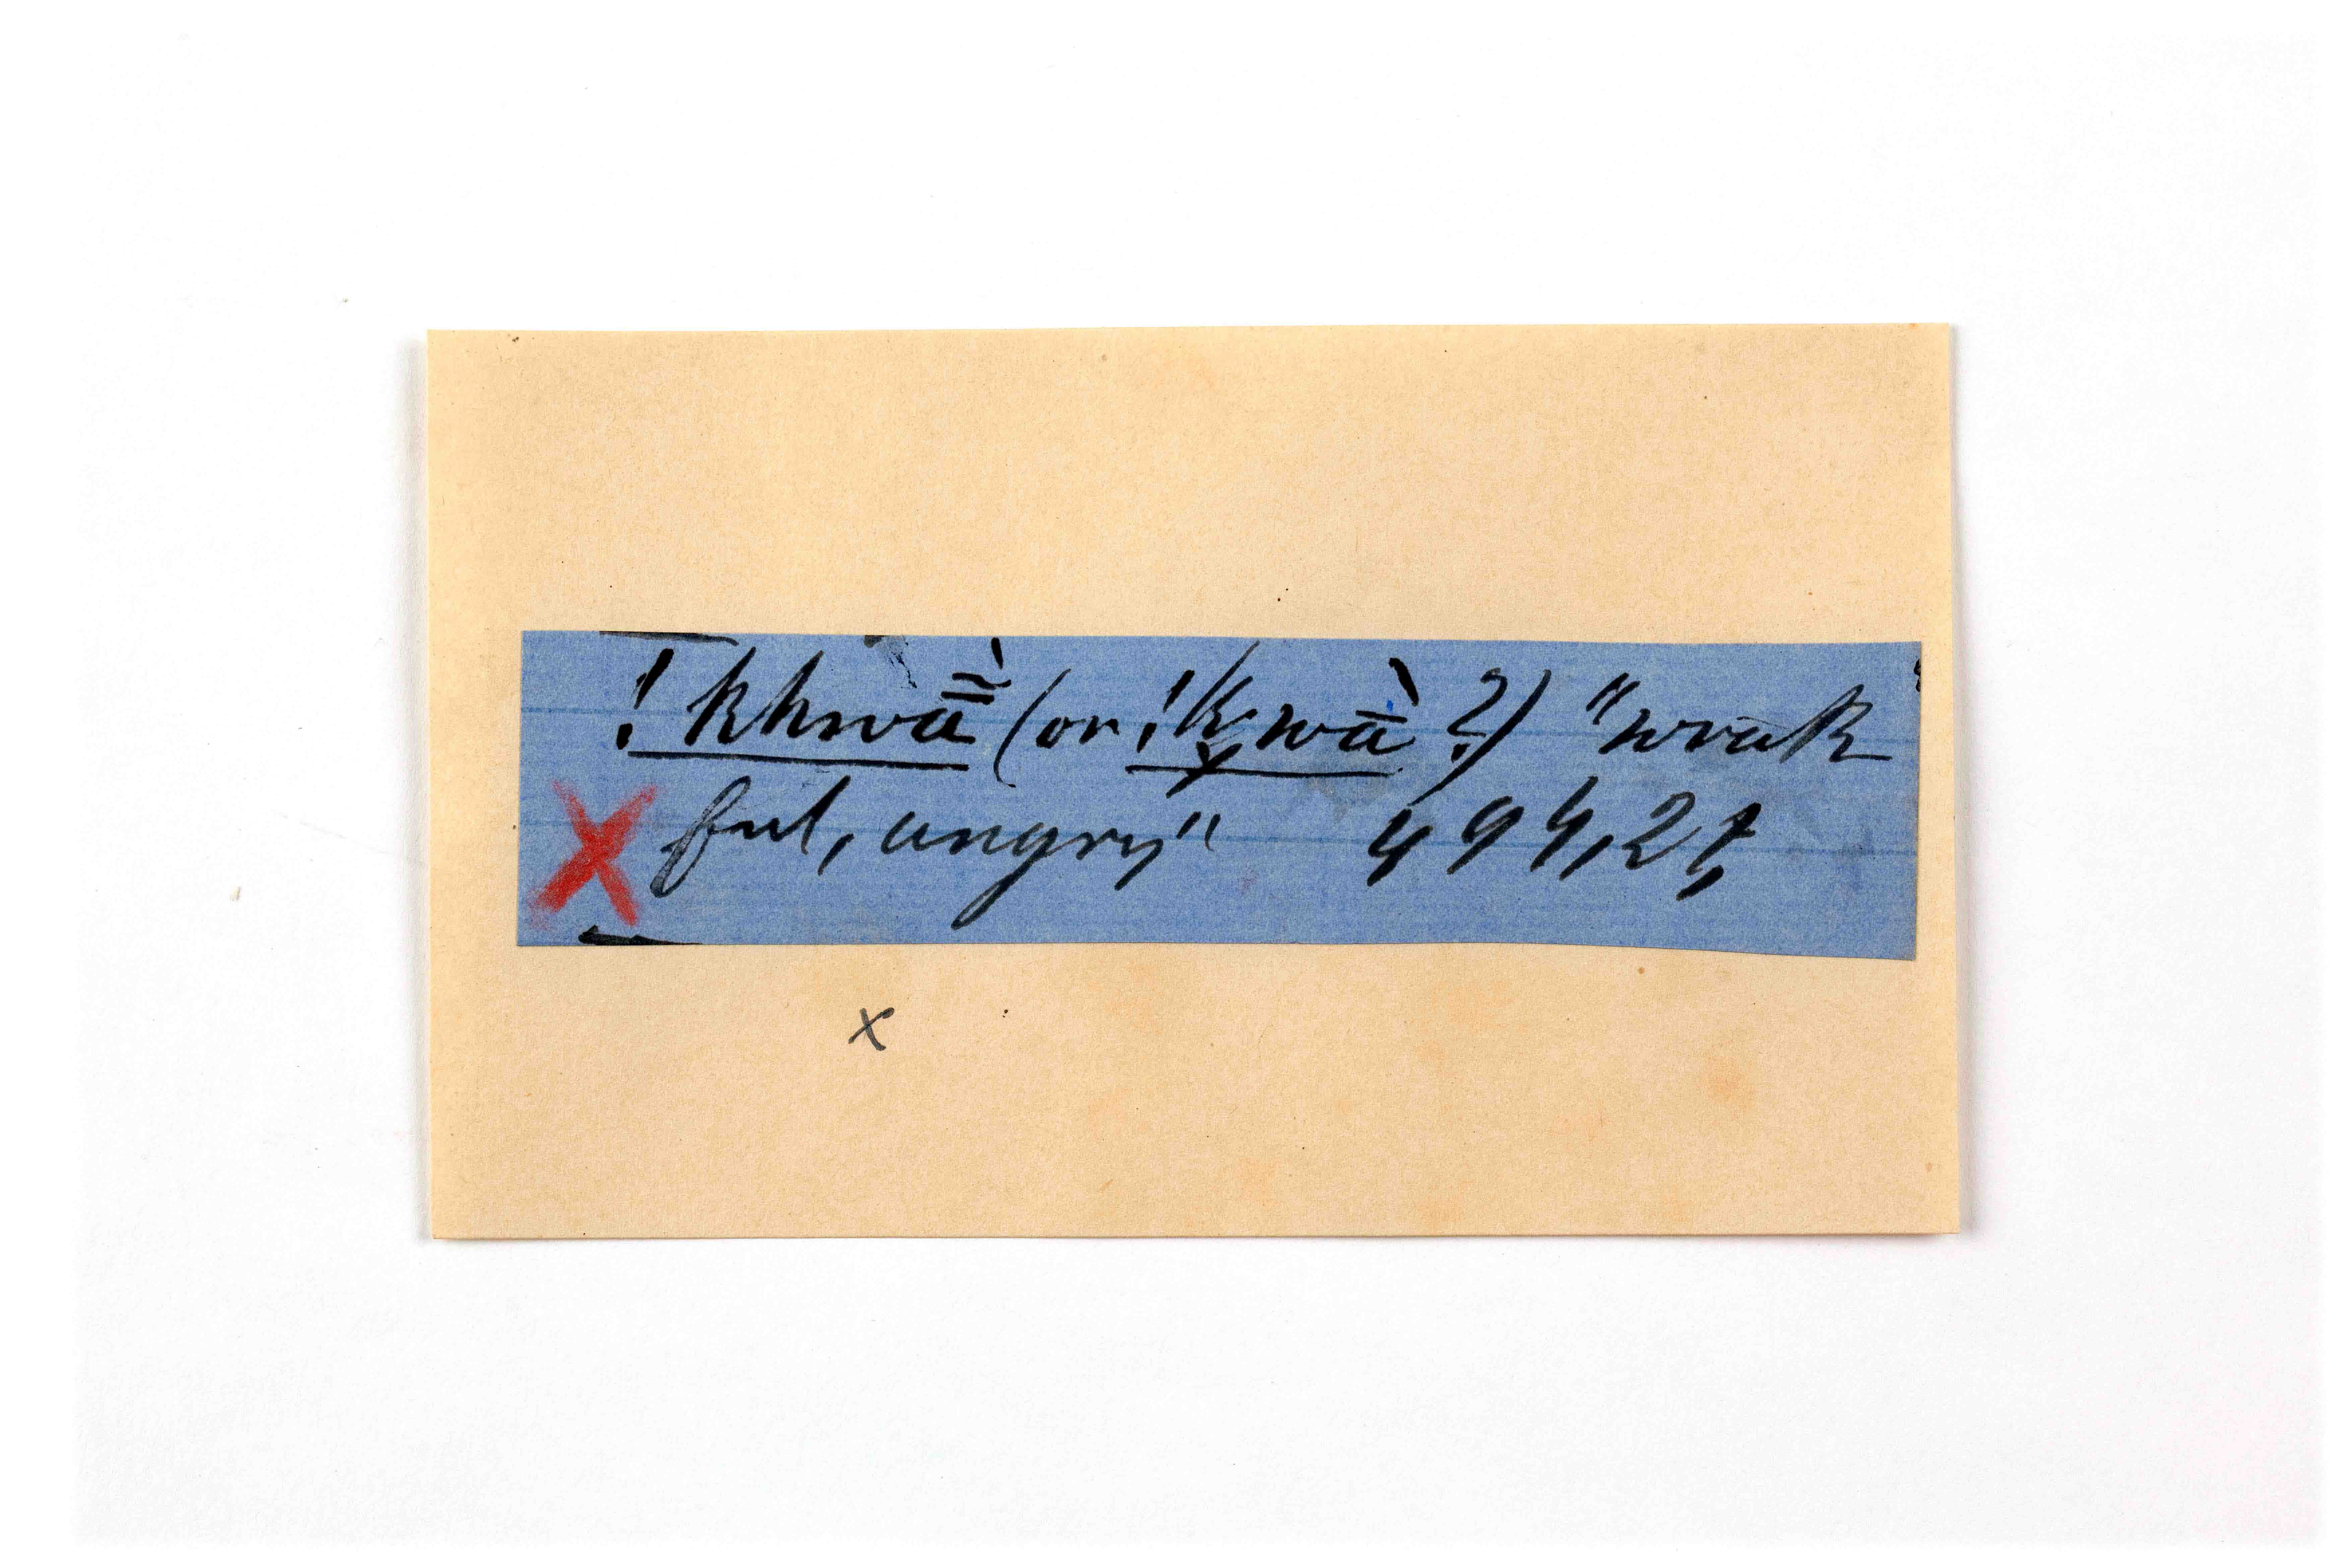 !khwā̄̀ (or !k̬wā̀ ?) "wrath
ful, angry" 494,
x